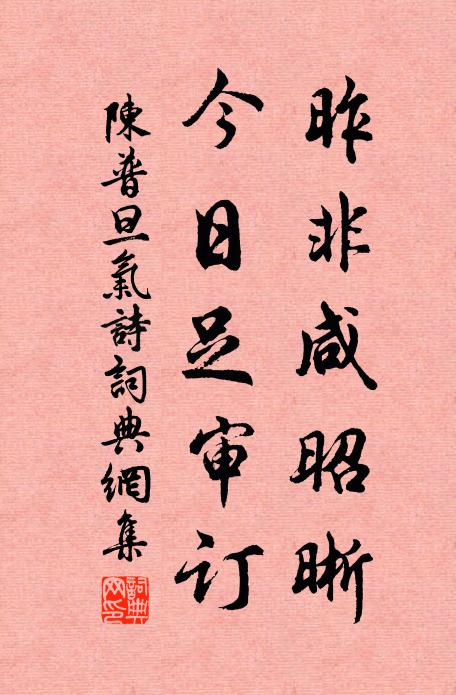 昨非咸昭晰
今日足审订
陳普旦氣詩詞典網集
詞典網印